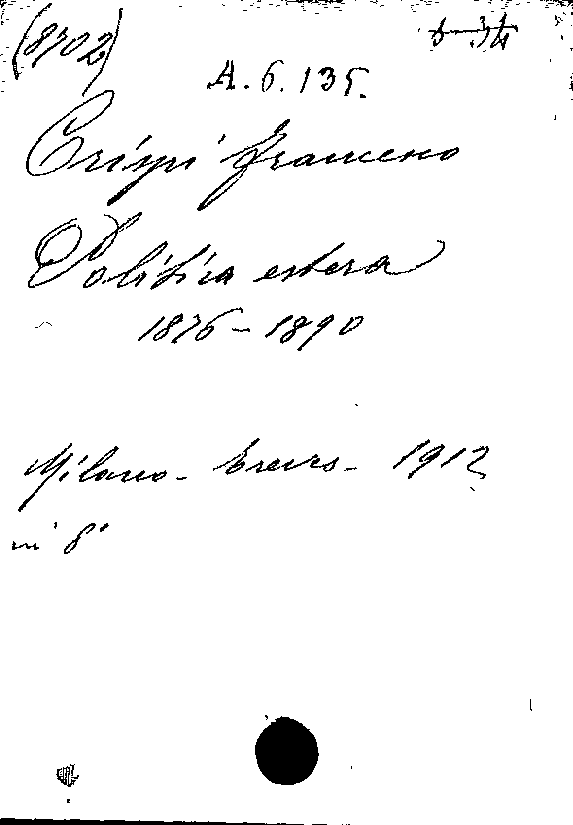 (8702)
A. 6. 135.
Crispi Francesco
Politica estera
1876 - 1890
Milano - Treves - 1912
in 8°